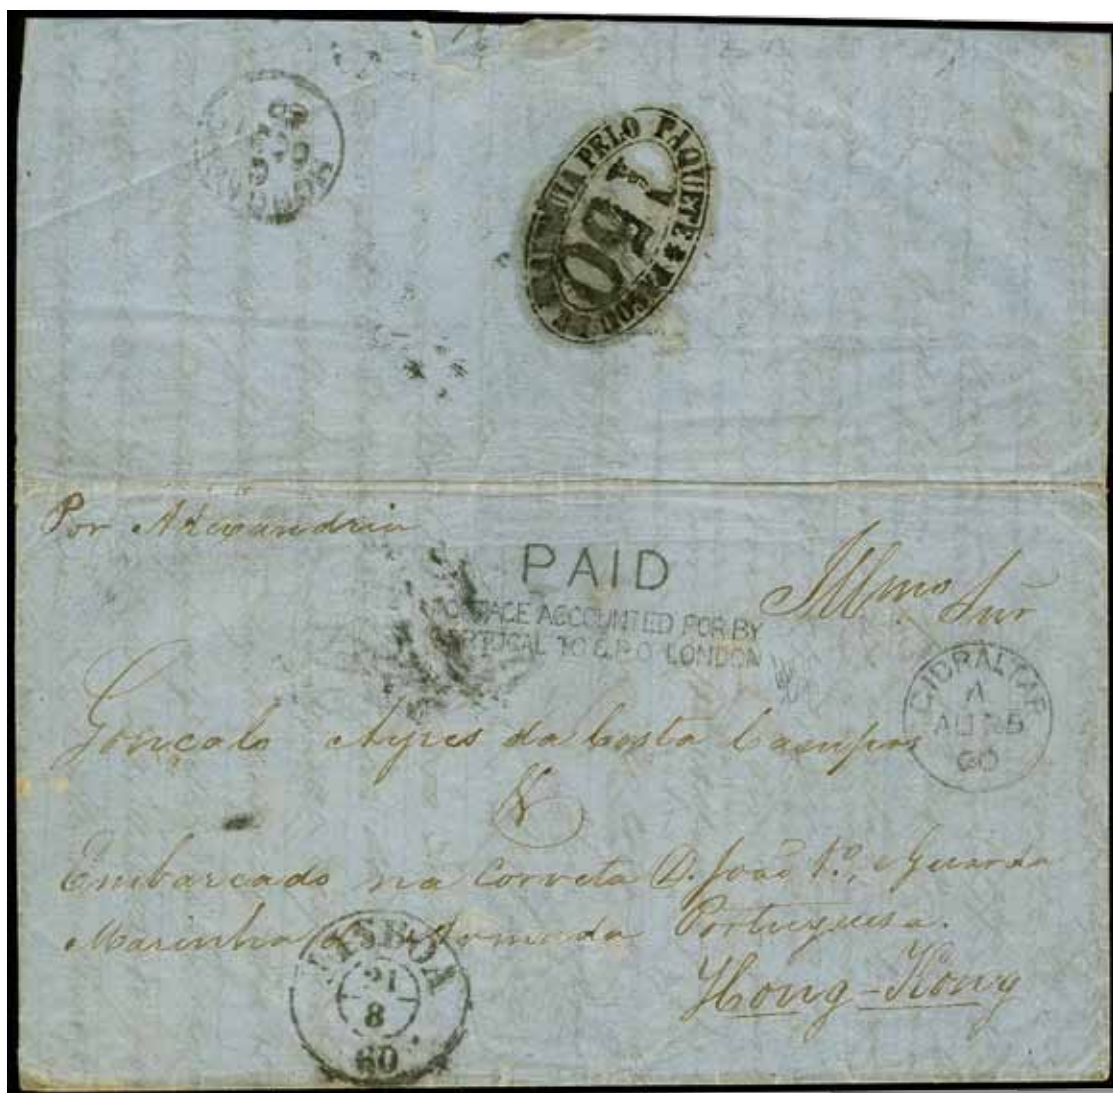 PAGOU EM FRANQUIA PELO PAQUETE
150
HONG KONG
60
Por Alexandria
PAID
POSTAGE ACCOUNTED FOR BY
PORTUGAL TO G.P.O. LONDON
Illmo. Snr
GIBRALTAR
A
AU 25
60
Gonçalo Ayres da Costa Campos
Embarcado na Corveta D. João 1º, Guarda
Marinha da Armada Portuguesa.
Hong-Kong
LISBOA
21
8
60